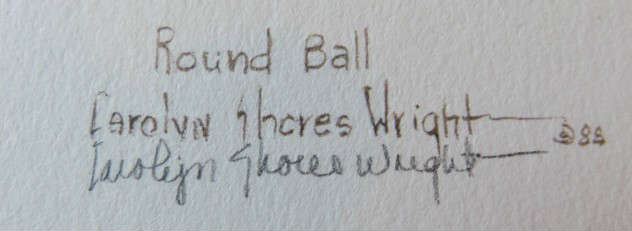 Round Ball
Carolyn Shores Wright
Carolyn Shores Wright